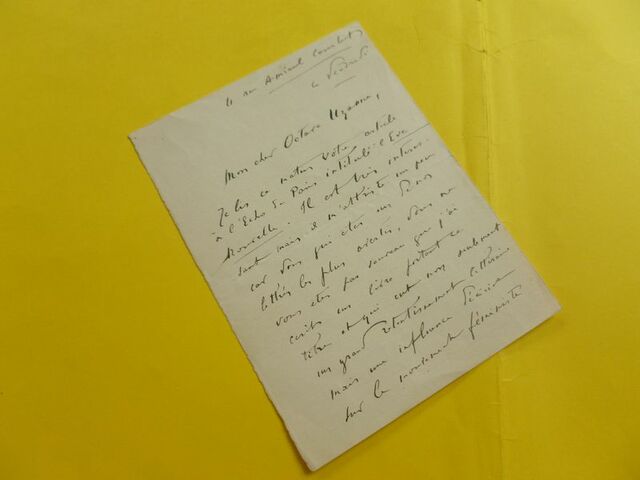 4 rue Amiral Courbet
Vendredi
Mon cher Octave Uzanne,
Je lis ce matin votre article
à l'Echo de Paris intitulé l'Eve
Nouvelle. Il est très intéres-
sant mais il m'attriste un peu
car vous qui êtes un de nos
lettrés les plus avertis, vous ne
vous êtes pas souvenu que j'ai
écrit un livre portant ce
titre et qui eut non seulement
un grand retentissement littéraire
mais une influence décisive
sur le mouvement féministe